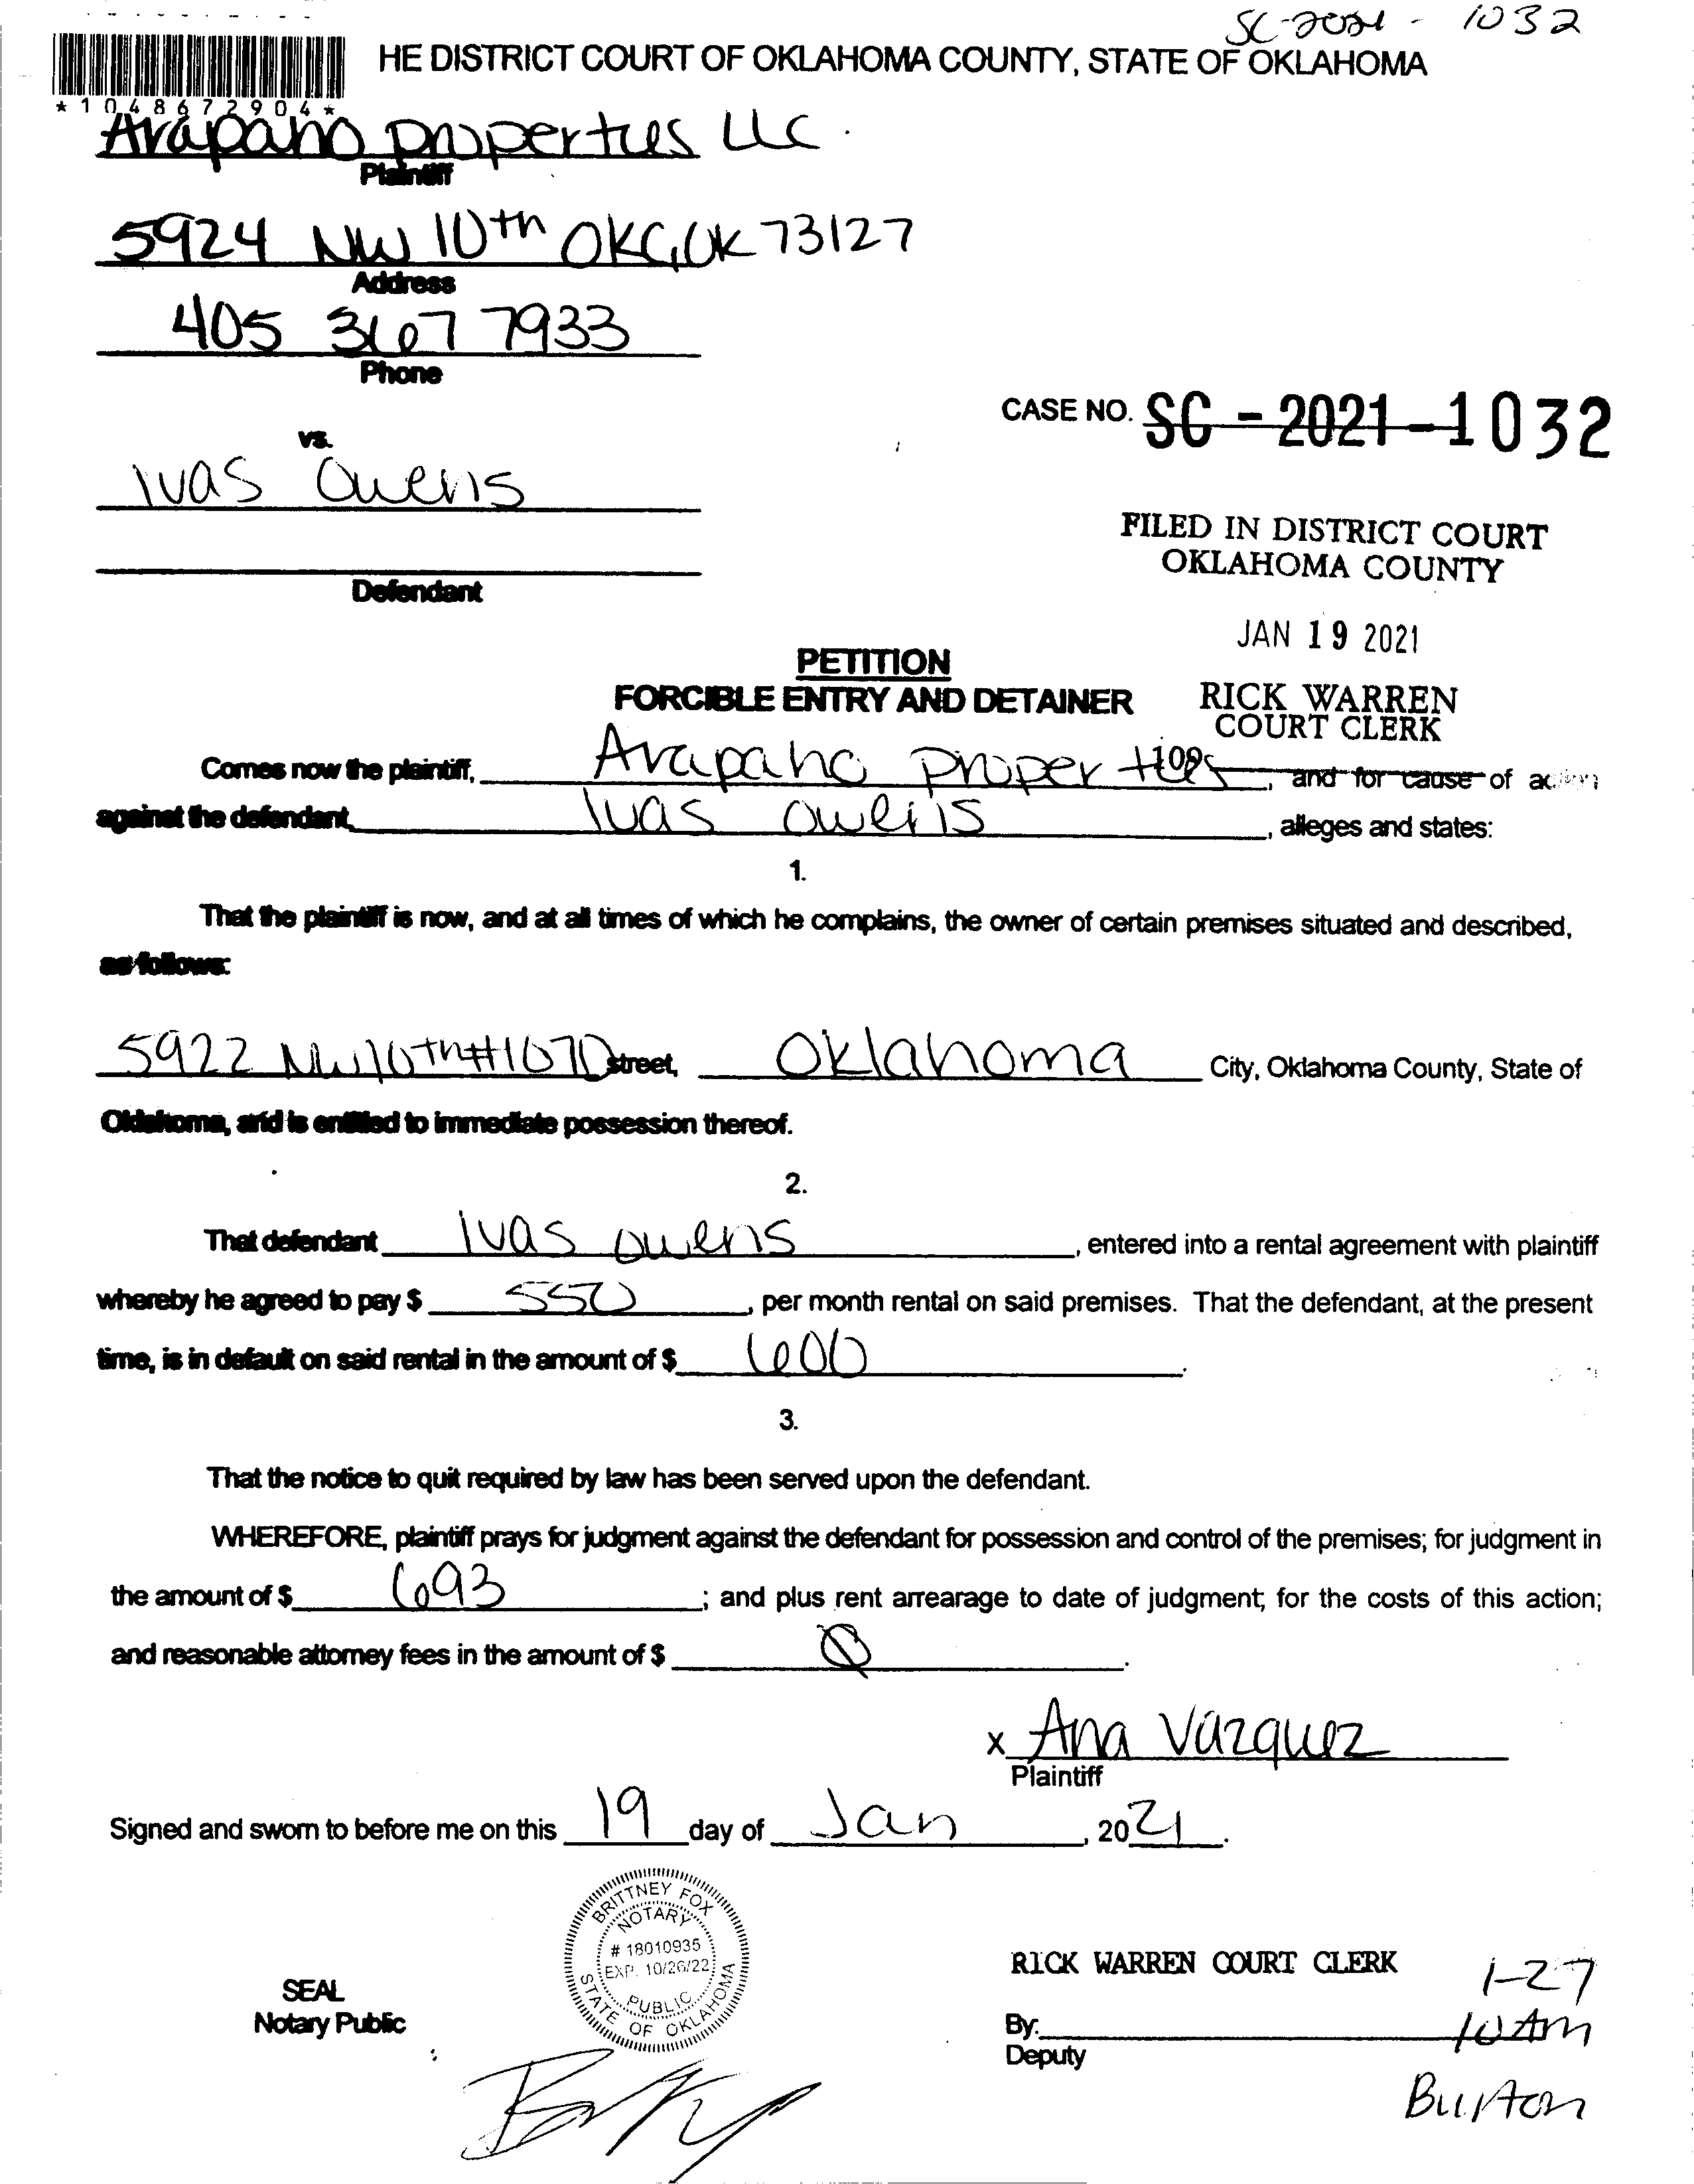 SC-2021 - 1032
HE DISTRICT COURT OF OKLAHOMA COUNTY, STATE OF OKLAHOMA
*1048672904*
Arapaho properties LLC.
Plaintiff
5924 NW 10th OKC, OK 73127
Address
405 367 7933
Phone
CASE NO. SC - 2021 - 1032
vs.
Ivas Owens
FILED IN DISTRICT COURT
OKLAHOMA COUNTY
Defendant
JAN 19 2021
PETITION
FORCIBLE ENTRY AND DETAINER
RICK WARREN
COURT CLERK
109
Comes now the plaintiff, Arapaho properties, and for cause of action
against the defendant, Ivas Owens, alleges and states:
1.
That the plaintiff is now, and at all times of which he complains, the owner of certain premises situated and described,
as follows:
5922 NW 10th #107D street, Oklahoma City, Oklahoma County, State of
Oklahoma, and is entitled to immediate possession thereof.
2.
That defendant Ivas Owens, entered into a rental agreement with plaintiff
whereby he agreed to pay $ 550, per month rental on said premises. That the defendant, at the present
time, is in default on said rental in the amount of $ 600.
3.
That the notice to quit required by law has been served upon the defendant.
WHEREFORE, plaintiff prays for judgment against the defendant for possession and control of the premises; for judgment in
the amount of $ 693; and plus rent arrearage to date of judgment; for the costs of this action;
and reasonable attorney fees in the amount of $ 0.
x Ana Vazquez
Plaintiff
Signed and sworn to before me on this 19 day of Jan, 2021.
BRITTNEY FOX
NOTARY
# 18010935
EXP. 10/26/22
PUBLIC
STATE OF OKLAHOMA
SEAL
Notary Public
RICK WARREN COURT CLERK
1-27
By:
10 Am
Deputy
Burton